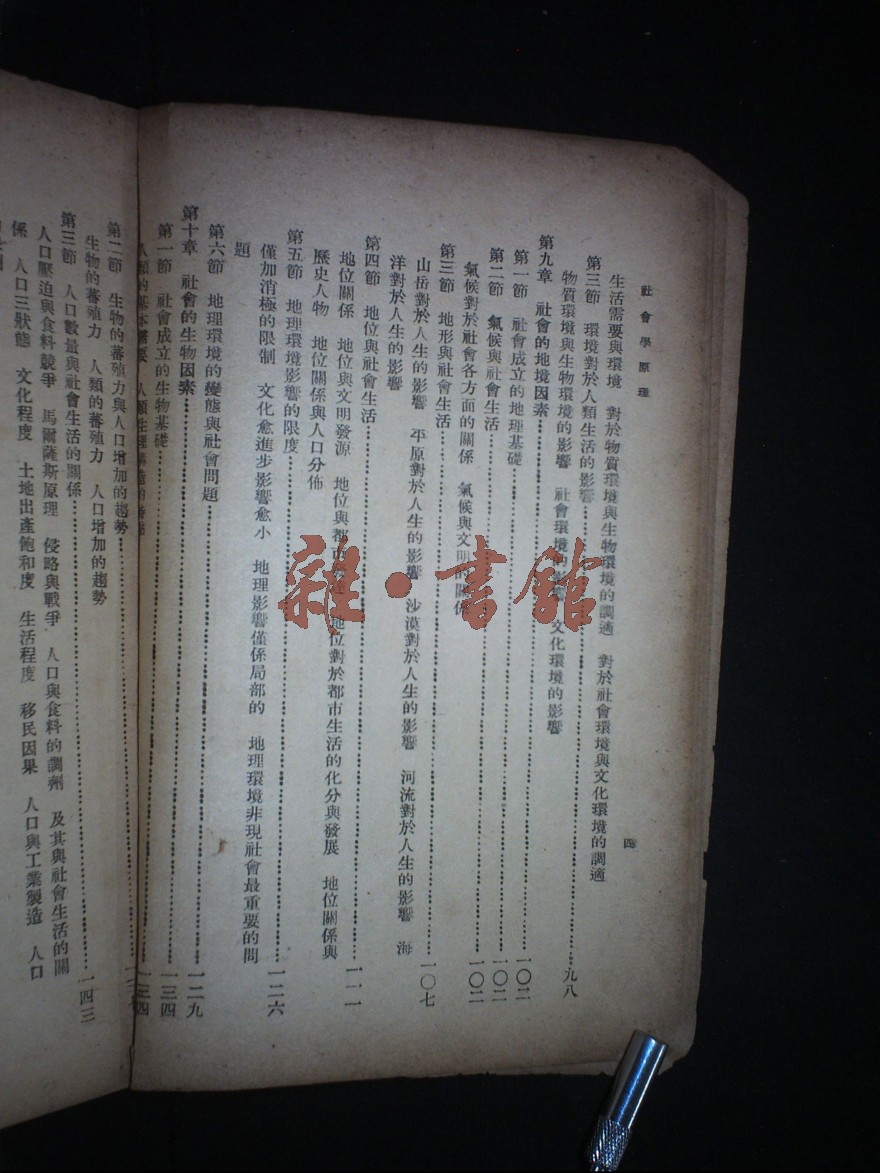 社會學原理
四
生活需要與環境　對於物質環境與生物環境的調適　對於社會環境與文化環境的調適
第三節　環境對於人類生活的影響……九八
物質環境與生物環境的影響　社會環境的影響　文化環境的影響
第九章　社會的地境因素……一〇二
第一節　社會成立的地理基礎……一〇二
第二節　氣候與社會生活……一〇二
氣候對於社會各方面的關係　氣候與文明的關係
第三節　地形與社會生活……一〇七
山岳對於人生的影響　平原對於人生的影響　沙漠對於人生的影響　河流對於人生的影響　海
洋對於人生的影響
第四節　地位與社會生活……一一一
地位關係　地位與文明發源　地位與都市　地位對於都市生活的化分與發展　地位關係與
歷史人物　地位關係與人口分佈
第五節　地理環境影響的限度……一二六
僅加消極的限制　文化愈進步影響愈小　地理影響僅係局部的　地理環境非現社會最重要的問
題
第六節　地理環境的變態與社會問題……一二九
第十章　社會的生物因素……一三四
第一節　社會成立的生物基礎……一三四
人類的基本需要　人類生理構造的
第二節　生物的蕃殖力與人口增加的趨勢……
生物的蕃殖力　人類的蕃殖力　人口增加的趨勢
第三節　人口數量與社會生活的關係……一四三
人口壓迫與食料競爭　馬爾薩斯原理　侵略與戰爭　人口與食料的調州　及其與社會生活的關
係　人口三狀態　文化程度　土地出產飽和度　生活程度　移民因果　人口與工業製造　人口
雜·書館